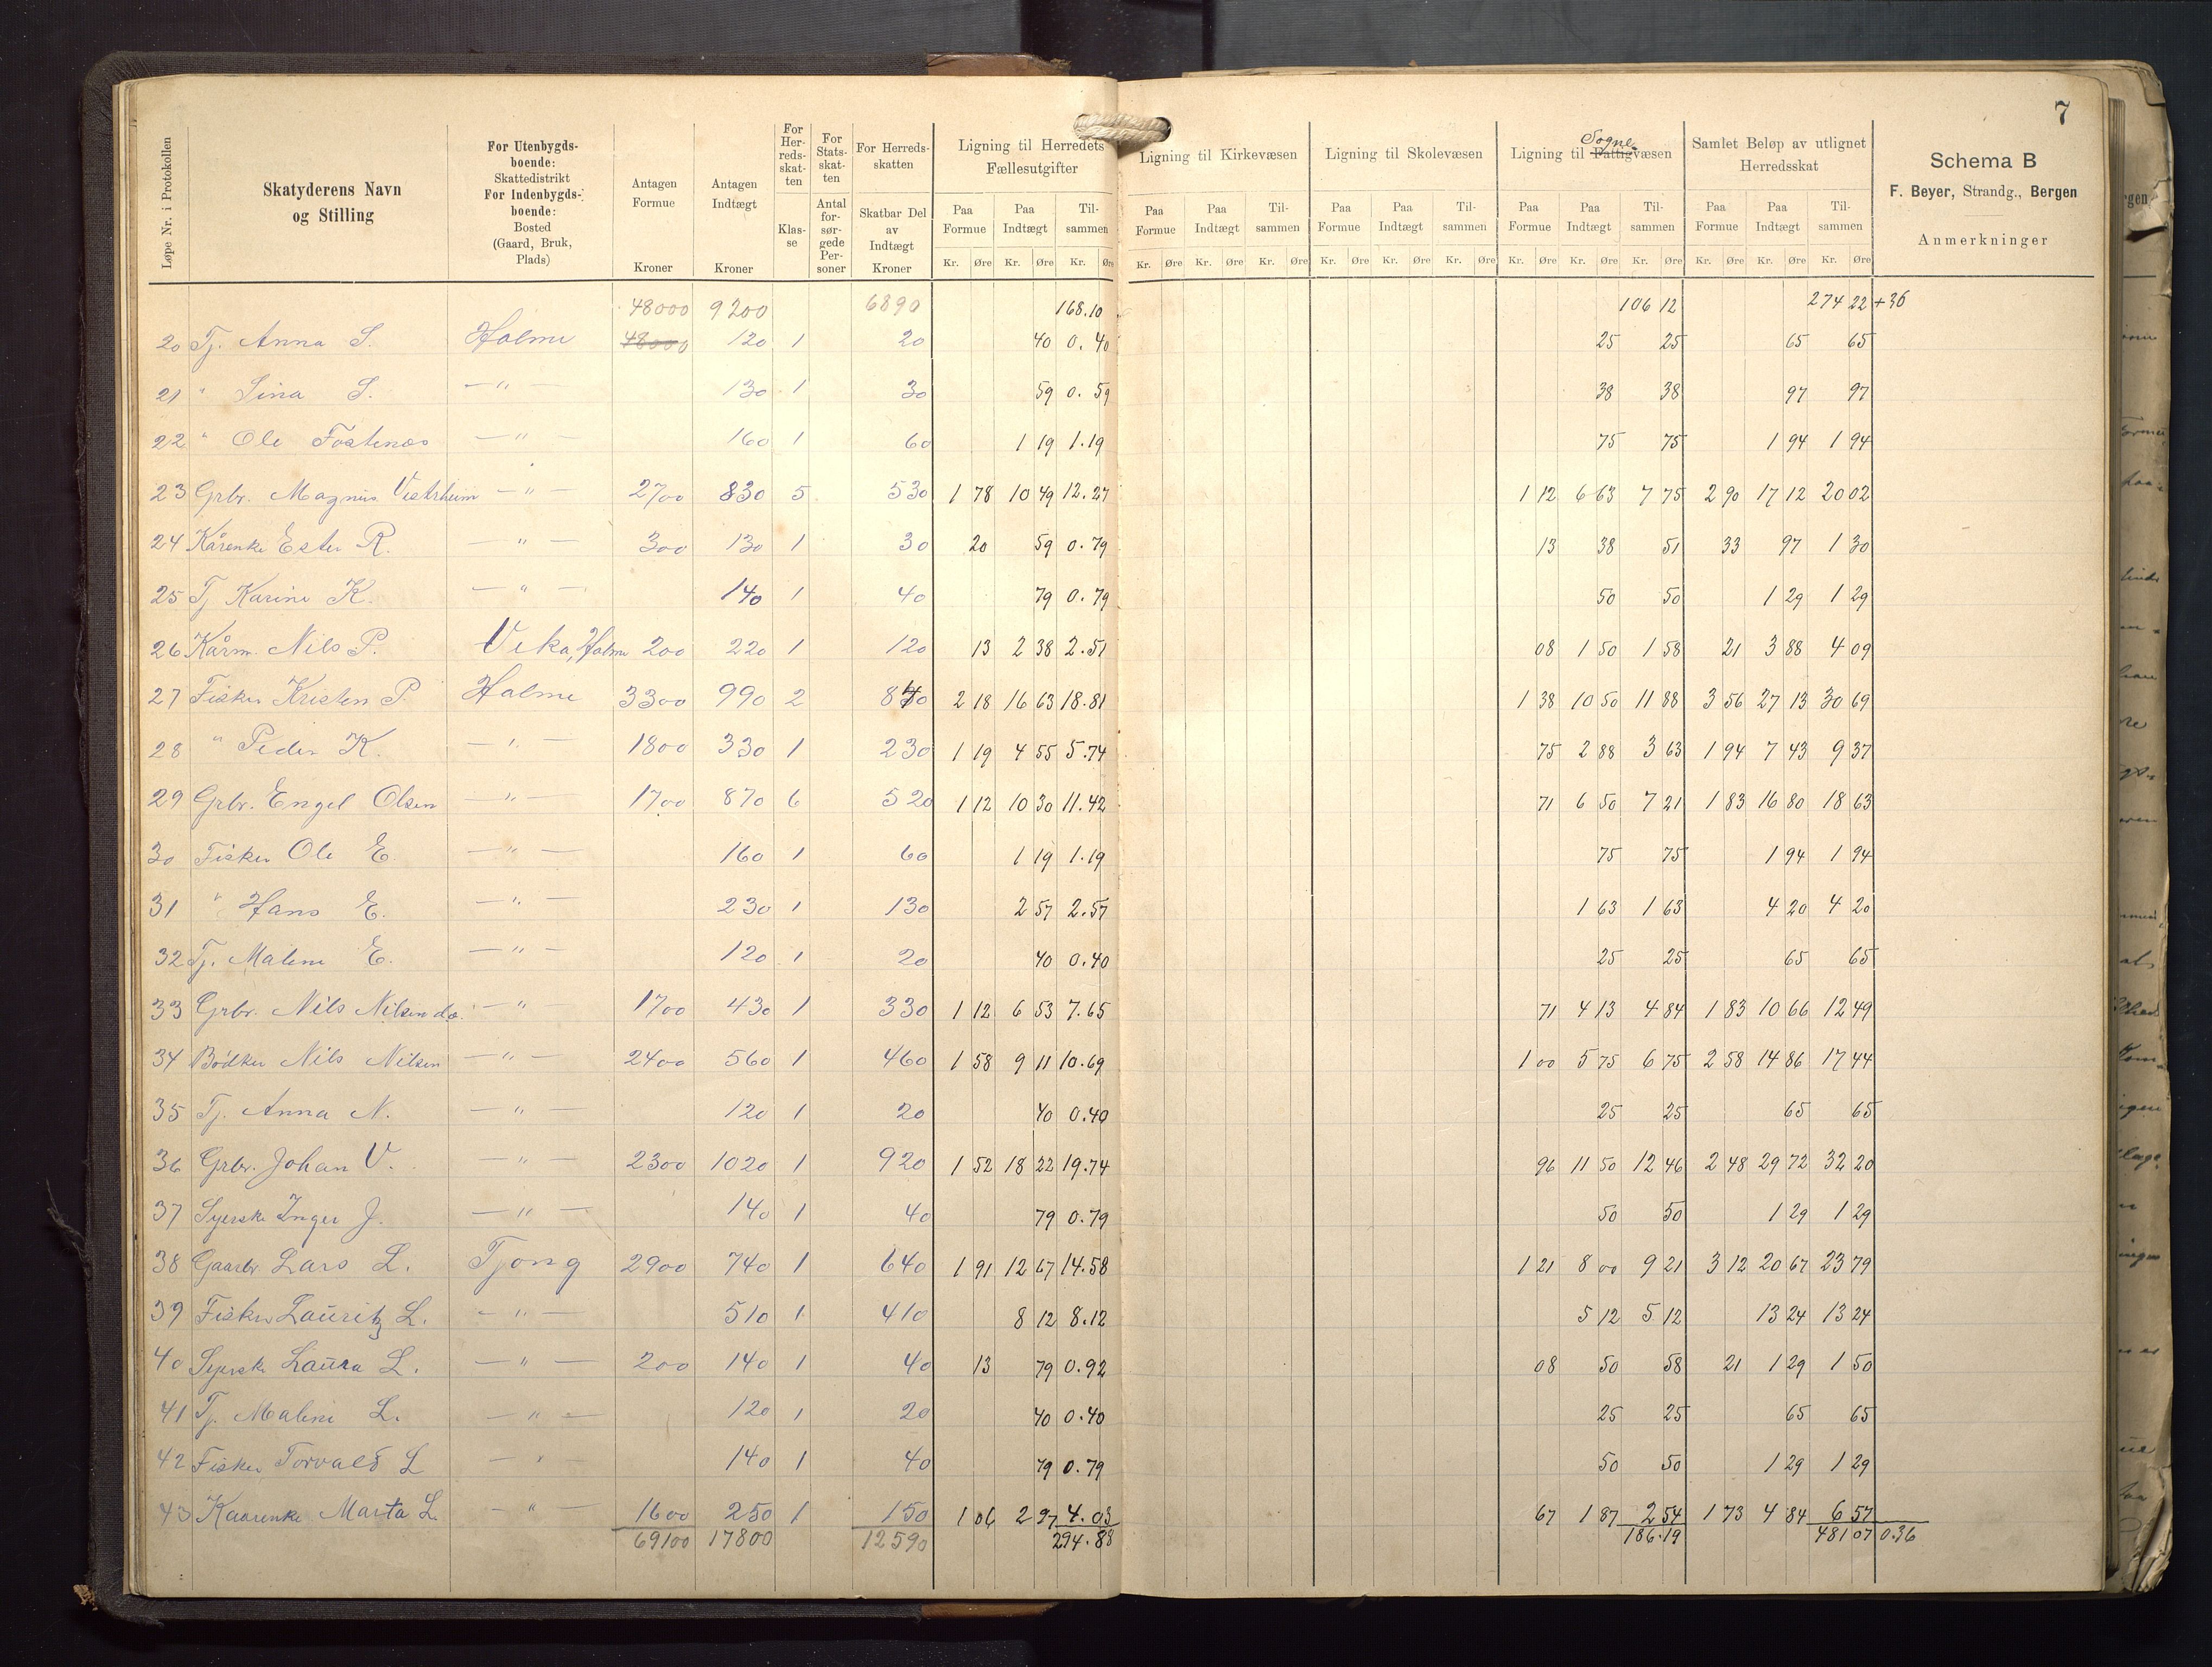 7
Løpe Nr. i Protokollen
Skatyderens Navn og Stilling
For Utenbygds-boende: Skattedistrikt For Indenbygds-boende: Bosted (Gaard, Bruk, Plads)
Antagen Formue Kroner
Antagen Indtægt Kroner
For Her-reds-skat-ten Klas-se
For Stats-skat-ten Antal for-sør-gede Per-soner
For Herreds-skatten Skatbar Del av Indtægt Kroner
Ligning til Herredets Fællesutgifter
Paa Formue Paa Indtægt Til-sammen
Kr. Øre Kr. Øre Kr. Øre
Ligning til Kirkevæsen
Paa Formue Paa Indtægt Til-sammen
Kr. Øre Kr. Øre Kr. Øre
Ligning til Skolevæsen
Paa Formue Paa Indtægt Til-sammen
Kr. Øre Kr. Øre Kr. Øre
Sogne
Ligning til Fattigvæsen
Paa Formue Paa Indtægt Til-sammen
Kr. Øre Kr. Øre Kr. Øre
Samlet Beløp av utlignet Herredsskat
Paa Formue Paa Indtægt Til-sammen
Kr. Øre Kr. Øre Kr. Øre
Schema B
F. Beyer, Strandg., Bergen
Anmerkninger
48000 9200 6890 168.10 106 12 274 22 +36
20 Tj. Anna S. Holme 48000 120 1 20 40 0.40 25 25 65 65
21 " Sina S. — " — 130 1 30 59 0.59 38 38 97 97
22 " Ole Fostenæs — " — 160 1 60 1 19 1.19 75 75 1 94 1 94
23 Grbr. Magnus Vestrheim — " — 2700 830 5 530 1 78 10 49 12.27 1 12 6 63 7 75 2 90 17 12 20 02
24 Kårenke Ester R. — " — 300 130 1 30 20 59 0.79 13 38 51 33 97 1 30
25 Tj Karine K. — " — 140 1 40 79 0.79 50 50 1 29 1 29
26 Kårm. Nils P. Vika, Holme 200 220 1 120 13 2 38 2.51 08 1 50 1 58 21 3 88 4 09
27 Fisker Kristen P. Holme 3300 990 2 840 2 18 16 63 18.81 1 38 10 50 11 88 3 56 27 13 30 69
28 " Peder K. — " — 1800 330 1 230 1 19 4 55 5.74 75 2 88 3 63 1 94 7 43 9 37
29 Grbr. Engel Olsen — " — 1700 870 6 520 1 12 10 30 11.42 71 6 50 7 21 1 83 16 80 18 63
30 Fisker Ole E. — " — 160 1 60 1 19 1.19 75 75 1 94 1 94
31 " Hans E. — " — 230 1 130 2 57 2.57 1 63 1 63 4 20 4 20
32 Tj. Malene E. — " — 120 1 20 40 0.40 25 25 65 65
33 Grbr. Nils Nilsen d.æ. — " — 1700 430 1 330 1 12 6 53 7.65 71 4 13 4 84 1 83 10 66 12 49
34 Bødker Nils Nilsen — " — 2400 560 1 460 1 58 9 11 10.69 1 00 5 75 6 75 2 58 14 86 17 44
35 Tj. Anna N. — " — 120 1 20 40 0.40 25 25 65 65
36 Grbr. Johan V. — " — 2300 1020 1 920 1 52 18 22 19.74 96 11 50 12 46 2 48 29 72 32 20
37 Syerske Inger J. — " — 140 1 40 79 0.79 50 50 1 29 1 29
38 Gaarbr Lars L. Tjong 2900 740 1 640 1 91 12 67 14.58 1 21 8 00 9 21 3 12 20 67 23 79
39 Fisker Lauritz L. — " — 510 1 410 8 12 8.12 5 12 5 12 13 24 13 24
40 Syerske Laura L. — " — 200 140 1 40 13 79 0.92 08 50 58 21 1 29 1 50
41 Tj. Maline L. — " — 120 1 20 40 0.40 25 25 65 65
42 Fisker Torvald L — " — 140 1 40 79 0.79 50 50 1 29 1 29
43 Kaarenke Marta L. — " — 1600 250 1 150 1 06 2 97 4.03 67 1 87 2 54 1 73 4 84 6 57
69100 17800 12590 294.88 186.19 481 07 0.36